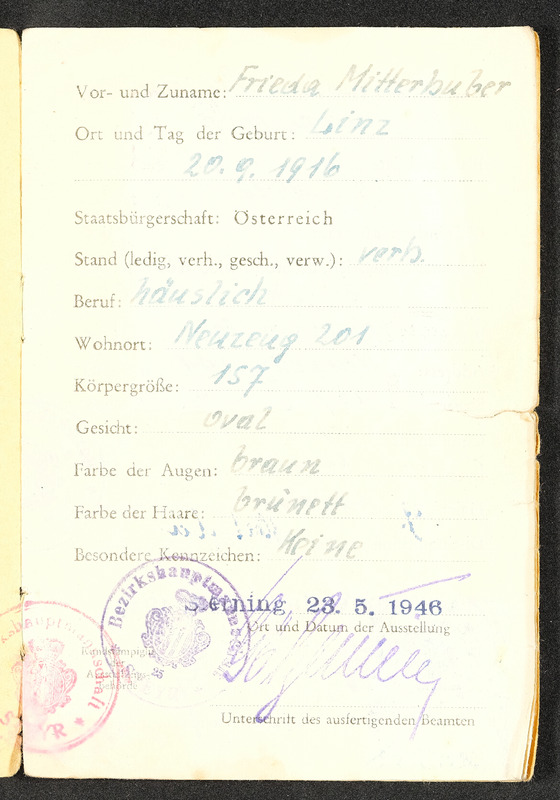 Vor- und Zuname: Frieda Mitterhuber
Ort und Tag der Geburt: Linz
20. 9. 1916
Staatsbürgerschaft: Österreich
Stand (ledig, verh., gesch., verw.): verh.
Beruf: häuslich
Wohnort: Neuzeug 201
Körpergröße: 157
Gesicht: oval
Farbe der Augen: braun
Farbe der Haare: brünett
Besondere Kennzeichen: Keine
Sierning, 23. 5. 1946
Ort und Datum der Ausstellung
Bezirkshauptmannschaft
Unterschrift des ausfertigenden Beamten